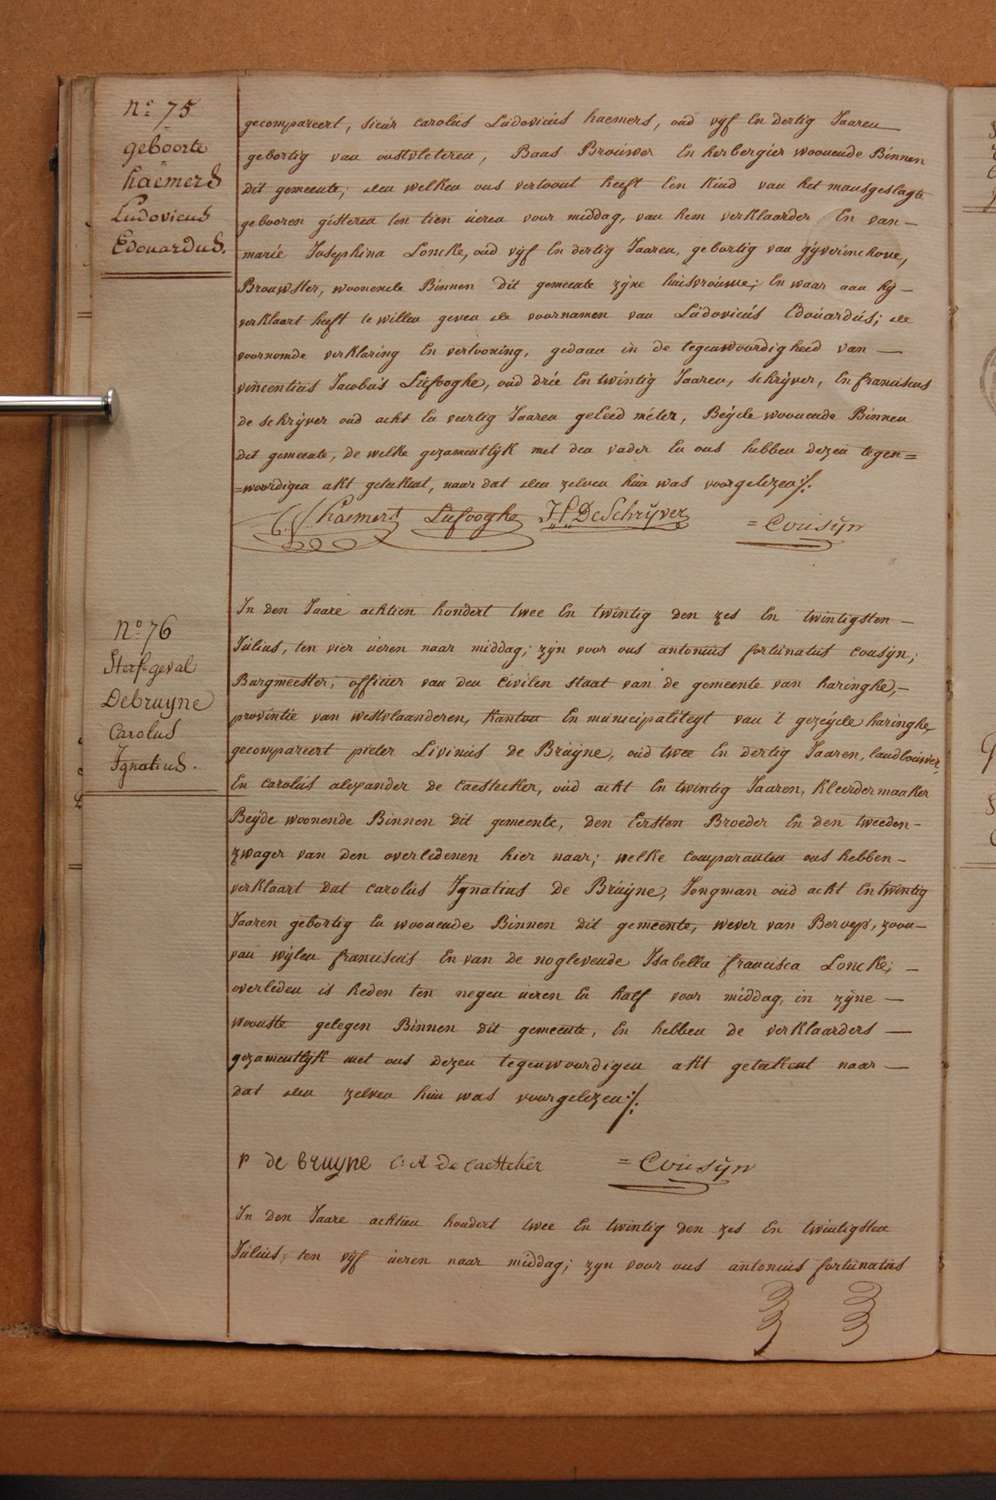 N.º 75
geboorte
haemers
Ludovicus
Edouardus.
gecompareert, sieur carolus Ludovicus haemers, oud vijf En dertig Jaaren
gebortig van oostvleteren, Baas Brouwer En herbergier woonende Binnen
dit gemeente; den welken ons vertoont heeft Een kind van het mansgeslagte
gebooren gisteren ten tien ueren voor middag, van hem verklaarder En van
marie Josephina Loncke, oud vijf En dertig Jaaren, gebortig van gijverinchove,
Brouwster, woonende Binnen dit gemeente zijne huisvrouwe; En waar aan hij
verklaart heeft te willen geven de voornamen van Ludovicus Edouardus; de
voornomde verklaring En vertooning, gedaan in de tegenwoordigheid van
vincentius Jacobus Liefooghe, oud drie En twintig Jaaren, schrijver, En franciscus
de schrijver oud acht En veertig Jaaren geloed meter, Beijde woonende Binnen
dit gemeente, de welke gezamentlijk met den vader En ons hebben dezen tegen=
=woordigen akt getekent, naar dat den zelven hun was voorgelezen ./.
haemers Liefooghe DeSchrijver = Cousijn
N.º 76
Sterf-geval
Debruyne
Carolus
Ignatius.
In den Jaare achtien hondert twee En twintig den zes En twintigsten
Julius, ten vier ueren naar middag; zijn voor ons antonius fortunatus cousijn;
Burgmeester, officier van den civilen staat van de gemeente van haringhe,
provintie van westvlaanderen, kanton En municipaliteijt van 't gezeijde haringhe,
gecompareert pieter Livinus de Bruijne, oud twee En dertig Jaaren, landbouwer,
En carolus alexander de caestecker, oud acht En twintig Jaaren, kleerdermaaker
Beijde woonende Binnen dit gemeente, den Eersten Broeder En den tweeden
zwager van den overledenen hier naar; welke comparanten ons hebben
verklaart dat carolus Ignatius de Bruijne, Jongman oud acht En twintig
Jaaren gebortig En woonende Binnen dit gemeente, wever van Beroep, zoon
van wijlen franciscus En van de noglevende Isabella francisca Loncke;
overleden is heden ten negen ueren En half voor middag, in zijne
woonste gelegen Binnen dit gemeente, En hebben de verklaarders
gezamentlijk met ons dezen tegenwoordigen akt getekent naar
dat den zelven hun was voorgelezen ./.
P de bruyne C: A De Caestcker = Cousijn
In den Jaare achtien hondert twee En twintig den zes En twintigsten
Julius, ten vijf ueren naar middag; zijn voor ons antonius fortunatus